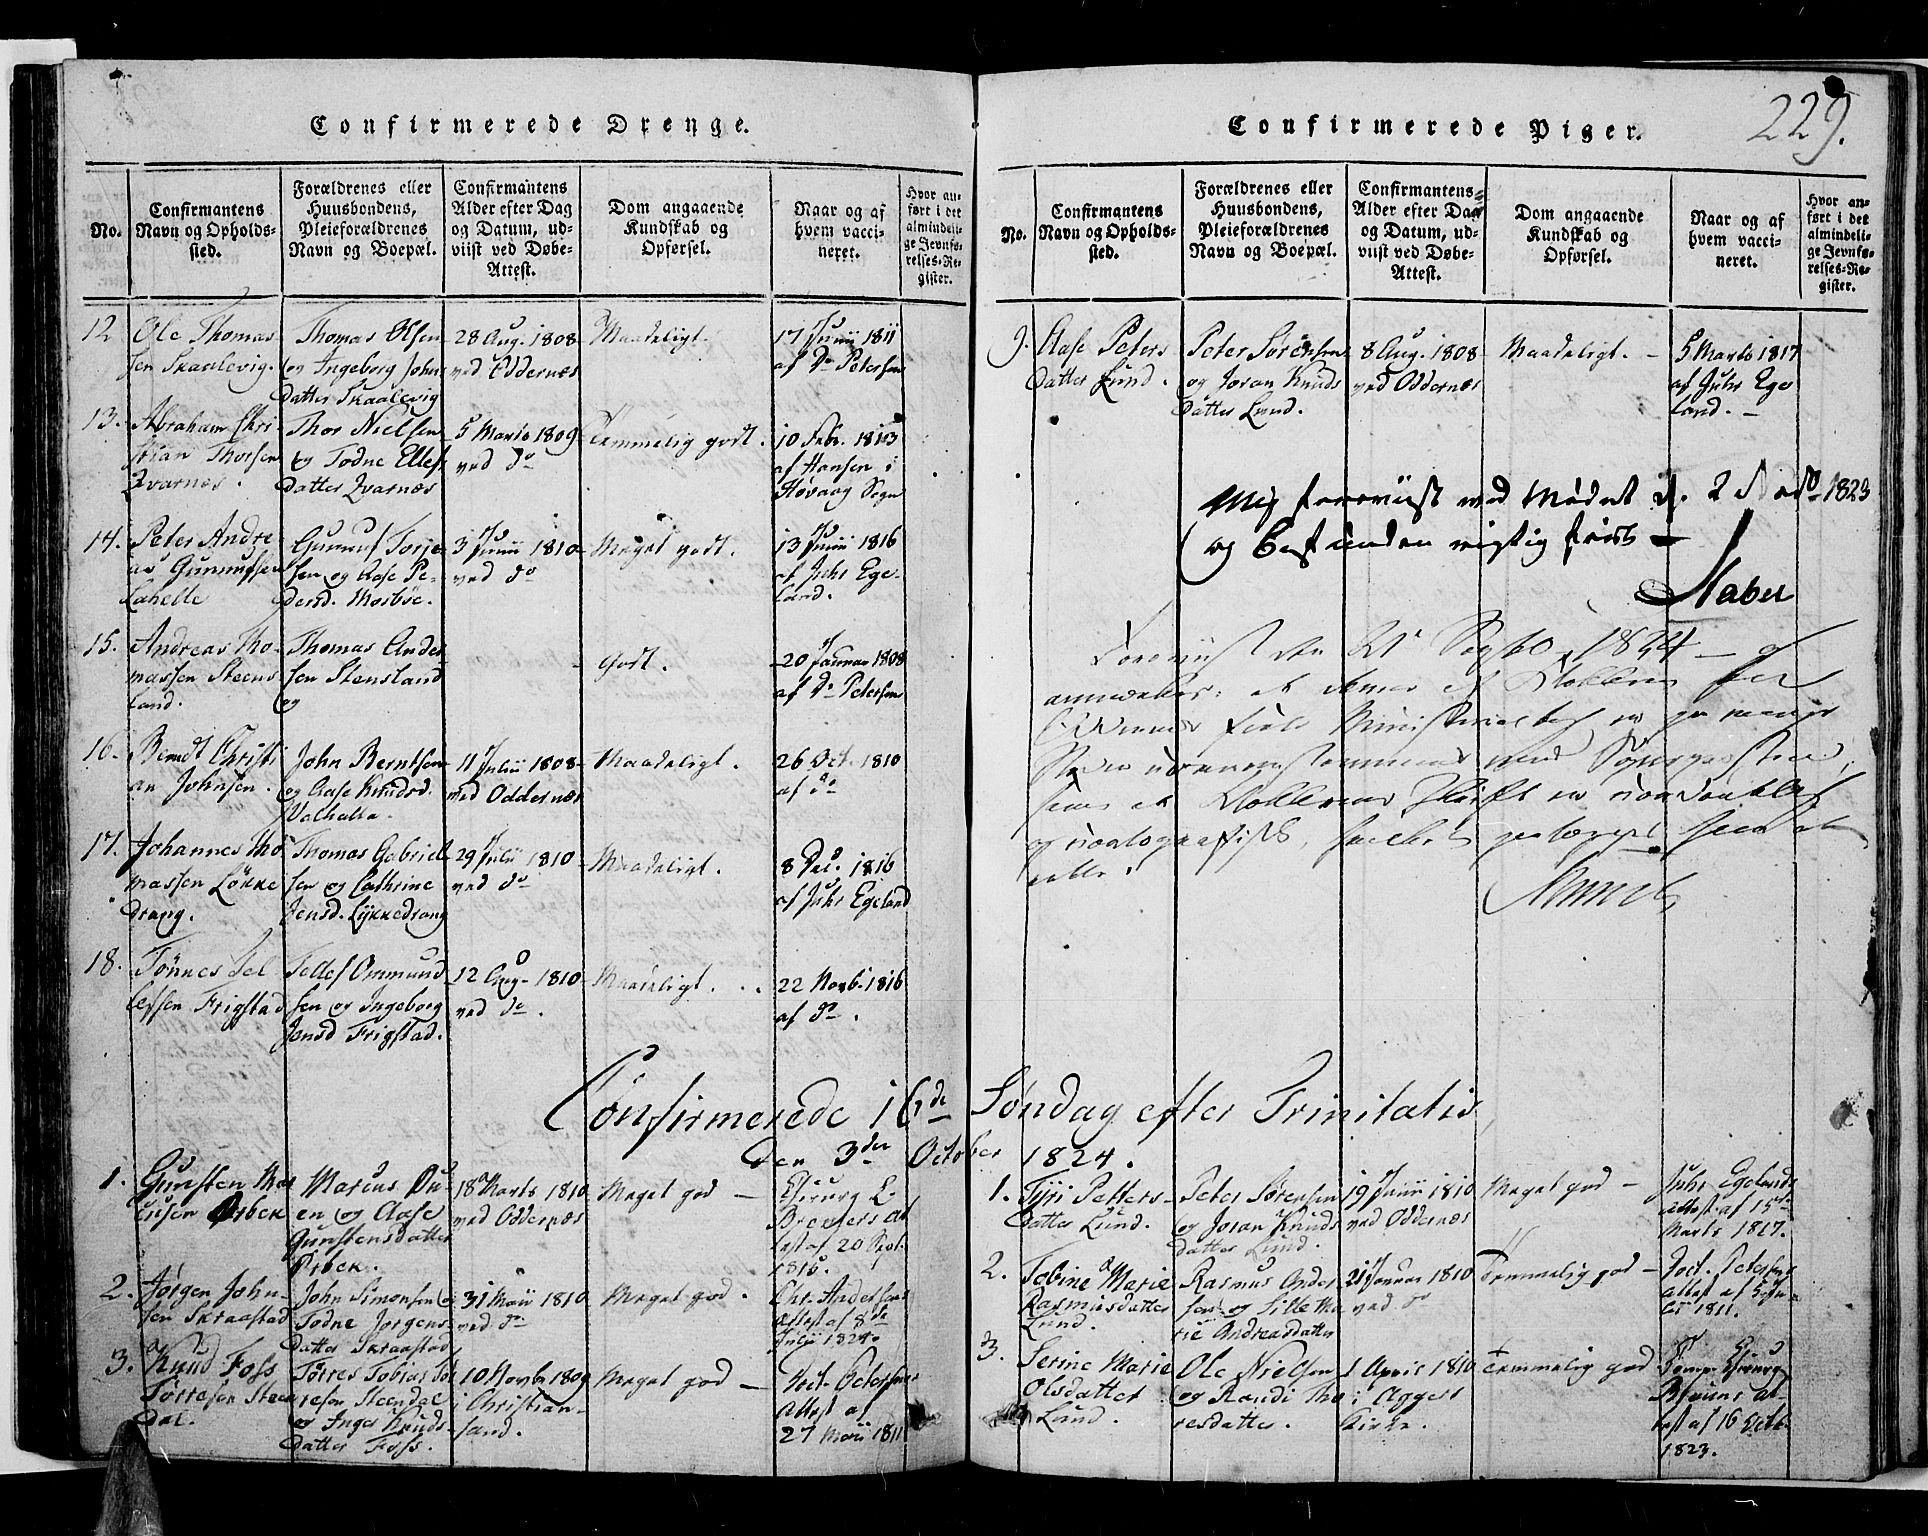 Confirmerede Drenge.
No.
Confirmantens
Navn og Opholds-
sted.
Forældrenes eller
Huusbondens,
Pleieforældrenes
Navn og Boepæl.
Confirmantens
Alder efter Dag
og Datum, ud-
viist ved Døbe-
Attest.
Dom angaaende
Kundskab og
Opførsel.
Naar og af
hvem vacci-
neret.
Hvor an-
ført i det
almindeli-
ge Jevnfø-
relses-Re-
gister.
12 Ole Thomas
sen Skaalevig.
Thomas Olsen
og Ingeborg Johns
datter Skaalevig
28 Aug. 1808
ved Oddernæs
Maadeligt.
17 Junii 1811
af Dr Petersen
13. Abraham Chri-
stian Thorsen
Qvarnes.
Thor Nielsen
og Todne Ellefs
datter Qvarnæs
5 Marts 1809
ved do
Temmelig godt.
10 Febr. 1813
af Hansen i
Høvaag Sogn
14. Peter Andre-
as Gunnufsen
Lahelle
Gunnuf Torje-
sen og Aase Pe-
dersd. Mosbøe.
3 Junii 1810
ved do
Meget godt.
13 Junii 1816
af Juhr Ege-
land.
15. Andreas Tho-
massen Steens
land.
Thomas Ander
sen Stensland
og
Godt.
20 Januar 1808
af Dr Petersen
16. Berndt Christi
an Johnsen.
John Berntsen
og Aase Knudsd.
Valhalla.
11 Julii 1808
ved Oddernæs
Maadeligt.
26 Oct. 1810
af do
17. Johannes Tho
massen Løkke
drang.
Thomas Gabriel
sen og Cathrine
Jensd. Lykkedrang
29 Julii 1810
ved do
Maadeligt.
8 Dec. 1816
af Juhr Egeland
18. Tønnes Tel
lefsen Frigstad
Tellef Ommund
sen og Ingeborg
Jensd Frigstad.
12 Aug. 1810
ved do.
Maadeligt.
22 Novb. 1816
af do.
Confirmerede 16de Søndag efter Trinitatis
den 3die October 1824.
1. Gunsten Mar
iusen Ørbek
Marius Du-
en og Aase
Gunstensdatter
Ørbek.
18 Marts 1810
ved Oddernæs
Meget god
Chirurg
at
test af 20 Sept.
1816.
2. Jørgen John-
sen Skraastad
John Simonsen og
Todne Jørgens
datter Skraastad
31 Maii 1810
ved do
Meget god.
Chr. Andersens
Attest af 8de
Julii 1824.
3. Knud Foss
Tørresen Steen
dal.
Tørres Tobias Tør
resen Steendal
og Inger Knuds-
datter Foss.
10 Novbr 1809
i Christian-
sand.
Meget god
Doct. Petersens
Attest af
27 Maii 1811
Confirmerede Piger.
229.
No.
Confirmantens
Navn og Opholds-
sted.
Forældrenes eller
Huusbondens,
Pleieforældrenes
Navn og Boepæl.
Confirmantens
Alder efter Dag
og Datum, ud-
viist ved Døbe-
Attest.
Dom angaaende
Kundskab og
Opførsel.
Naar og af
hvem vacci-
neret.
Hvor an-
ført i det
almindeli-
ge Jevnfø-
relses-Re-
gister.
9. Aase Peters
datter Lund.
Peter Sørensen
og Joran Knuds
datter Lund.
8 Aug. 1808
ved Oddernæs
Maadeligt.
5 Marts 1817
af Juhr Ege
land.
Mig foreviist ved Mødet d. 1823
og befunden rigtig ført
Foreviist den 1824 og
anmærkes: at denne af Klokkeren
1. Tyri Petters
datter Lund.
Peter Sørensen
og Joran Knuds
datter Lund.
19 Junii 1810
ved Oddernæs
Meget god
Juhr Egelands
attest af 15de
Marts 1817.
2. Tebine Marie
Rasmusdatter
Lund.
Rasmus Ander
sen og Sille Ma
rie Andreasdatter
21 Januar 1810
ved do
Temmelig god
Doct. Petersens
attest af
1811.
3. Serine Marie
Olsdatter
Lund.
Ole Nielsen
og Randi Tho
resdatter.
1 April 1810
i Agger
Kirke.
Temmelig god
Chirurg
Bruuns at-
test af 16 Octb.
1823.